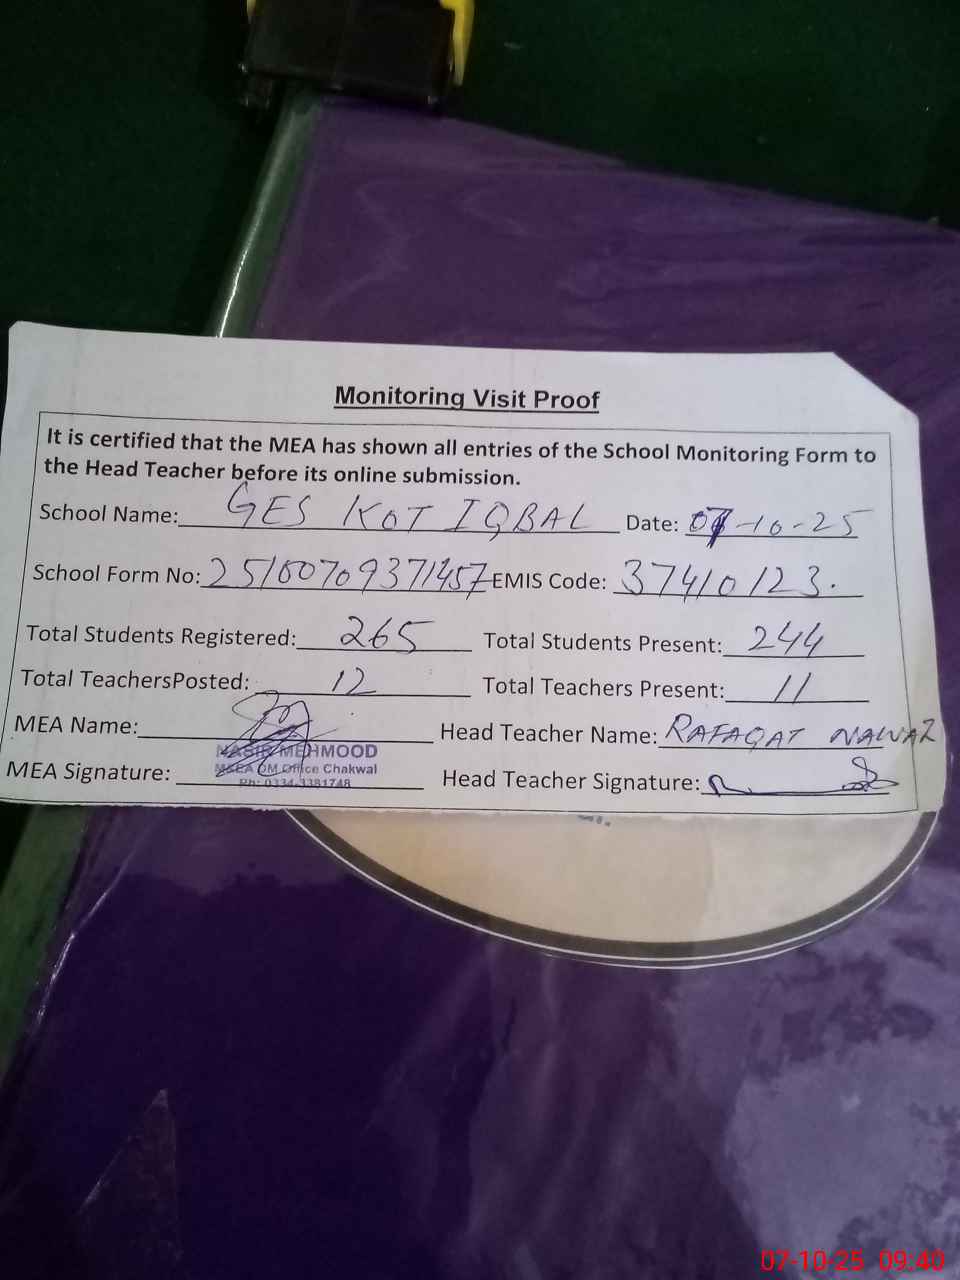 Monitoring Visit Proof
It is certified that the MEA has shown all entries of the School Monitoring Form to
the Head Teacher before its online submission.
School Name: GES KOT IQBAL Date: 07-10-25
School Form No: 25100709371457 EMIS Code: 37410123.
Total Students Registered: 265 Total Students Present: 244
Total TeachersPosted: 12 Total Teachers Present: 11
MEA Name: Head Teacher Name: RAFAQAT NAWAZ
NASIR MEHMOOD
M&EA DM Office Chakwal
Ph: 0334-3381748
MEA Signature: Head Teacher Signature:
07-10-25 09:40